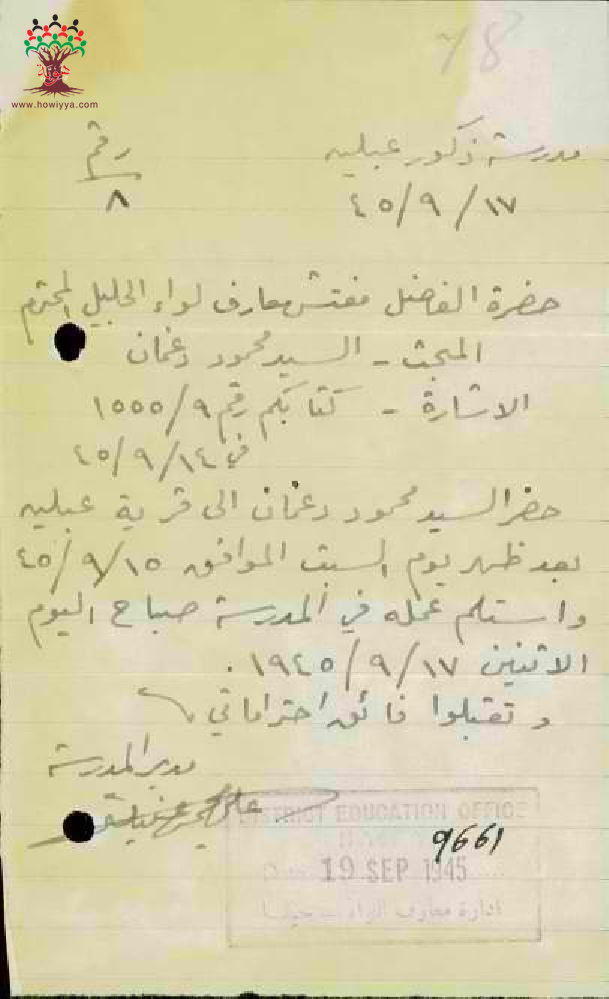 78
www.howiyya.com
مدرسة ذكور عبليه
رقم
٨
١٧/٩/٤٥
حضرة الفاضل مفتش معارف لواء الجليل المحترم
المبحث - السيد محمود دغمان
الاشارة - كتابكم رقم ٩/١٥٥٥
في ١٤/٩/٤٥
حضر السيد محمود دغمان الى قرية عبليه
بعد ظهر يوم السبت الموافق ١٥/٩/٤٥
واستلم عمله في المدرسة صباح اليوم
الاثنين ١٧/٩/١٩٤٥.
وتقبلوا فائق احتراماتي
مدير المدرسة
DISTRICT EDUCATION OFFICE
9661
19 SEP 1945
ادارة معارف اللواء - حيفا